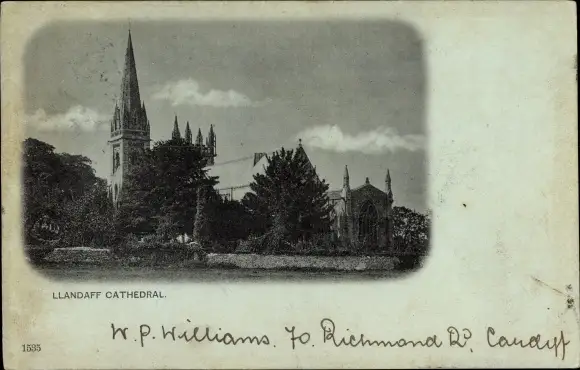 LLANDAFF CATHEDRAL.
W. P. Williams. 70. Richmond Rd, Cardyf
1535